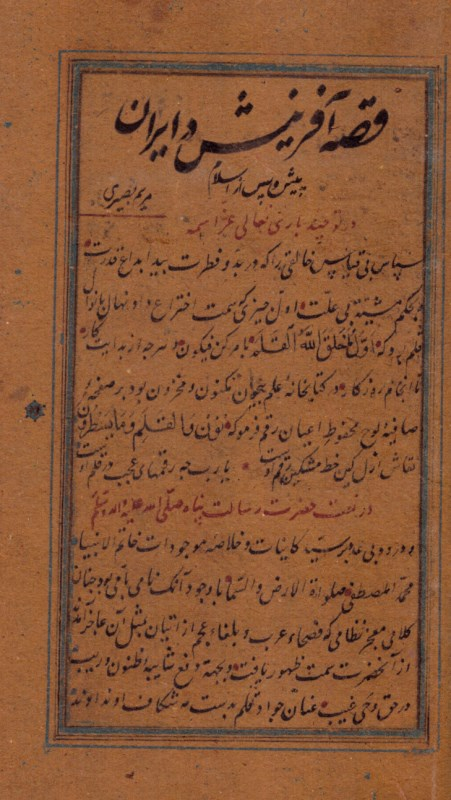 قصه آفرینش در ایران
پیش و پس از اسلام
مریم نصیری
در توحید باری تعالی عز اسمه
سپاس بی قیاس خالقی را که در بدو فطرت بید ابداع قدرت
و بحکم مشیته بی علت اول چیزی که سمت اختراع داد
قلم بود که اول ما خلق الله القلم بامر کن فیکون و هر چه از بدایت کار
تا انجام روزگار در کتابخانهٔ علم بیچون مکنون و مخزون بود بر صفحه
صافیهٔ لوح محفوظ اعیان رقم فرمود که ن والقلم وما یسطرون
نقاش ازل کین خط مشکین رقم اوست یا رب چه رقمهای عجب در قلم اوست
در نعت حضرت رسالت پناه صلی الله علیه واله وسلم
و درود بی عد بر سید کاینات و خلاصه موجودات خاتم الانبیا
محمد المصطفی صلوة الارض والسما با وجود آنک نامی بود چنان
کلامی معجز نظامی که فصحاء عرب و بلغاء عجم از اتیان بمثل آن عاجز آمدند
از آنحضرت سمت ظهور یافت و بجهة دفع شایبه ظنون و ریب
در حق وحی غیب عنان جواد قلم بدست نداوند